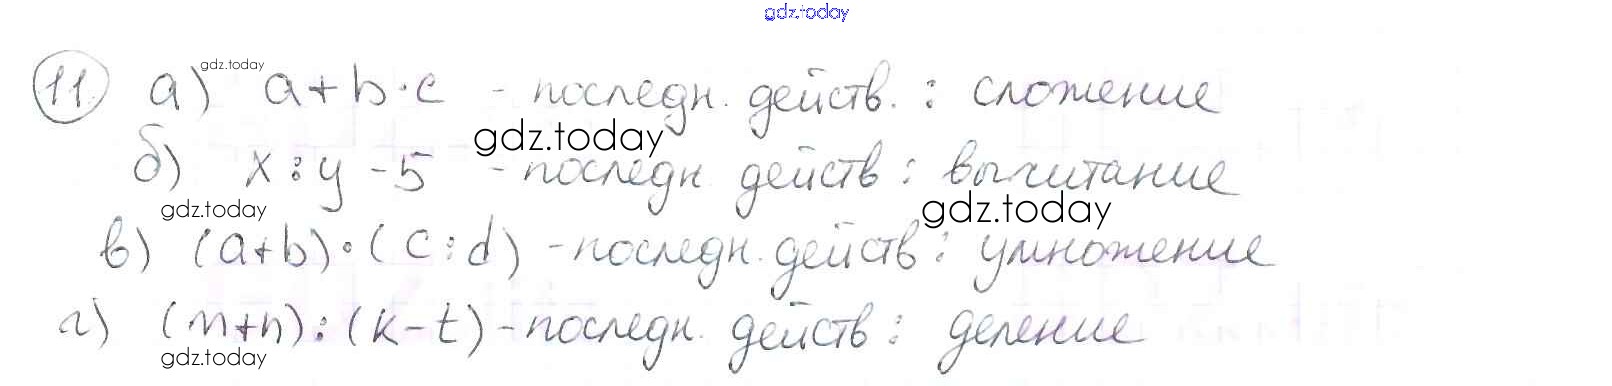 gdz.today
11. а) a+b·c - последн. действ. : сложение
gdz.today
gdz.today
б) x:y-5 - последн действ : вычитание
gdz.today
gdz.today
в) (a+b)·(c:d) - последн. действ : умножение
г) (m+n):(k-t) - последн. действ : деление
gdz.today
gdz.today